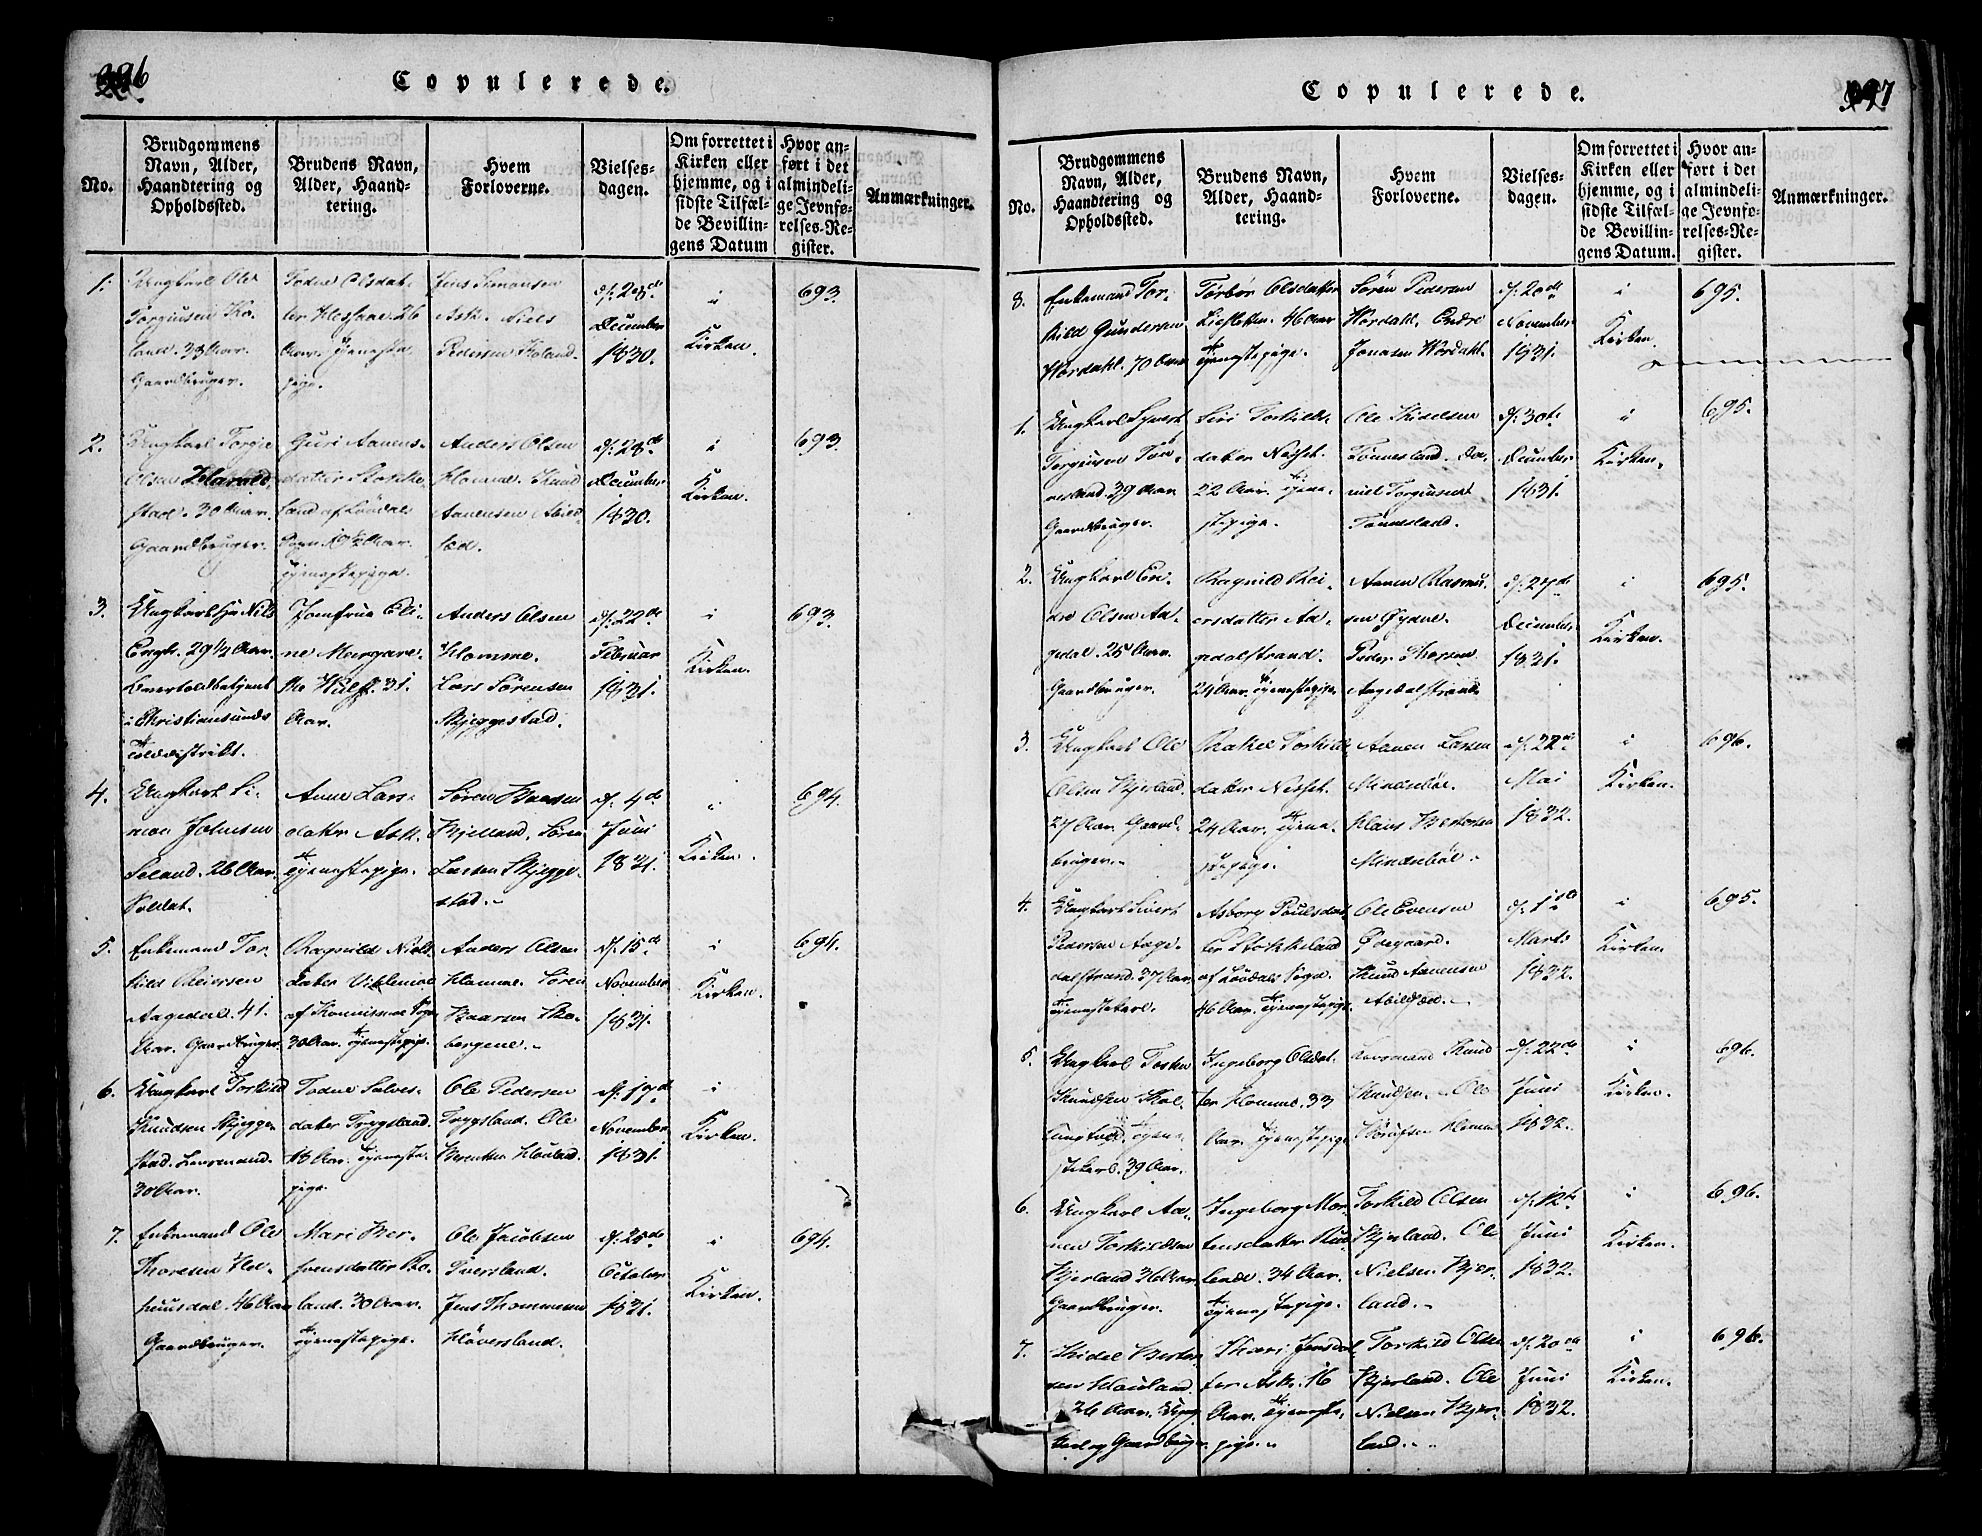 296
Copulerede.
No.
Brudgommens
Navn, Alder,
Haandtering og
Opholdssted.
Brudens Navn,
Alder, Haand-
tering.
Hvem
Forloverne.
Vielses-
dagen.
Om forrettet i
Kirken eller
hjemme, og i
sidste Tilfæl-
de Bevillin-
gens Datum
Hvor an-
ført i det
almindeli-
ge Jevnfø-
relses-Re-
gister.
Anmærkninger.
1.
Ungkarl Ole
Torgiusen
land. 33 Aar.
Gaardbruger.
Todne Olsdat-
ter 26
Aar. Tjeneste
pige.
Jens Simonsen
Ask. Niels
Pedersen
d. 28de
December
1830.
i
Kirken.
693.
2.
Ungkarl Torgie
Olsen Harald-
stad. 30 Aar.
Gaardbruger.
Guri Aanens-
datter Stokke-
land af Løvdals
Sogn. 19½ Aar.
Tjenestepige.
Anders Olsen
Homme. Knud
Aanensen Abild-
sæd.
d. 28de
December
1830.
i
Kirken.
693.
3.
Ungkarl Hr. Niels
29½ Aar.
i Christiansunds
Tolddistrikt.
Jomfrue Eli-
ne Margare-
the 31
Aar.
Anders Olsen
Homme.
Lars Sørensen
Skjeggestad.
d. 22de
Februar
1831.
i
Kirken.
693.
4.
Ungkarl Si-
mon Johnsen
Seland. 26 Aar.
Soldat.
Anne Lars-
datter Ask.
Tjenestepige.
Søren Baarsen
Kjelland. Søren
Larsen Skjegge-
stad.
d. 4de
Juni
1831.
i
Kirken.
694.
5.
Enkemand Tor-
kild Reiersen
Aagedal. 41.
Aar. Gaardbruger.
Ragnild Niels-
datter
af
30 Aar. Tjenestepige.
Anders Olsen
Homme. Søren
Baarsen
d. 15de
November
1831.
i
Kirken.
694.
6.
Ungkarl Torkild
Knudsen Skjegge-
stad. Lensmand.
30 Aar.
Todne Salves-
datter Trygsland.
18 Aar. Tjeneste-
pige.
Ole Pedersen
Trygsland. Ole
Berentsen Houland.
d. 17de
November
1831.
i
Kirken.
7.
Enkemand Ole
Thoresen
46 Aar
Gaardbruger.
Mari
land. 30 Aar.
Tjenestepige.
Ole Jacobsen
Iversland.
Jens Thommesen
Høversland.
d. 25de
October
1831.
i
Kirken.
694.
297
Copulerede.
No.
Brudgommens
Navn, Alder,
Haandtering og
Opholdssted.
Brudens Navn,
Alder, Haand-
tering.
Hvem
Forloverne.
Vielses-
dagen.
Om forrettet i
Kirken eller
hjemme, og i
sidste Tilfæl-
de Bevillin-
gens Datum.
Hvor an-
ført i det
almindeli-
ge Jevnfø-
relses-Re-
gister.
Anmærkninger.
8.
Enkemand Tor-
kild Gundersen
Wordahl. 70 Aar
Torbor Olsdatter
46 Aar
Tjenestepige.
Søren Pedersen
Wordahl. Endre
Jonasen Wordahl.
d. 20de
November
1831.
i
Kirken.
695.
1.
Ungkarl Syvert
Torgiusen Tøn-
nesland. 39 Aar
Gaardbruger.
Siri Torkilds-
datter Nesset.
22 Aar. Tjene-
stepige.
Ole Kittelsen
Tønnesland. Da-
niel Torgiusen
Tønnesland.
d. 30te
December
1831.
i
Kirken.
695.
2.
Ungkarl En-
dre Olsen Aa-
gedal. 25 Aar.
Gaardbruger.
Ragnild Rei-
ersdatter Aa-
gedalstrand.
24 Aar. Tjenestepige.
Aanen Rasmu-
sen Øydne.
Peder
Aagedalstrand.
d. 27de
December
1831.
i
Kirken.
695.
3.
Ungkarl Ole
Olsen Kjerland.
27 Aar. Gaard-
bruger.
Rakel Torkilds-
datter Nesset.
24 Aar. Tjene-
stepige.
Aanen Larsen
Mindebøe.
Mindebøe.
d. 22de
Mai
1832.
i
Kirken.
696.
4.
Ungkarl Sivert
Pedersen Aage-
dalstrand. 37 Aar.
Tjenestekarl.
Asborg Poulsdat-
ter Stokkeland
af Løvdals Sogn.
46 Aar. Tjenestepige.
Ole Evensen
Ødegaard.
Knud Aanensen
Abildsæd.
d. 1ste
Marts
1832.
i
Kirken.
695.
5.
Ungkarl
Knudsen
Tjene-
stekarl. 39 Aar.
Ingeborg Olsdat-
ter Homme. 33
Aar. Tjenestepige
Lensmand Knud
Knudsen. Ole
Homme
d. 22de
Juni
1832.
i
Kirken.
696.
6.
Ungkarl Aa-
nen Torkildsen
Kjerland 36 Aar
Gaardbruger.
Ingeborg Mor-
tensdatter
34 Aar.
Tjenestepige.
Torkild Olsen
Kjerland. Ole
Nielsen Kjer-
land.
d. 12te
Juni
1832.
i
Kirken.
696.
7.
Kidel
sen Houland.
26 Aar. Ung-
karl og Gaardbruger.
Jensdat-
ter Ask. 16
Aar. Tjeneste-
pige.
Torkild Olsen
Kjerland. Ole
Nielsen Kjer-
land.
d. 20de
Juni
1832.
i
Kirken.
696.